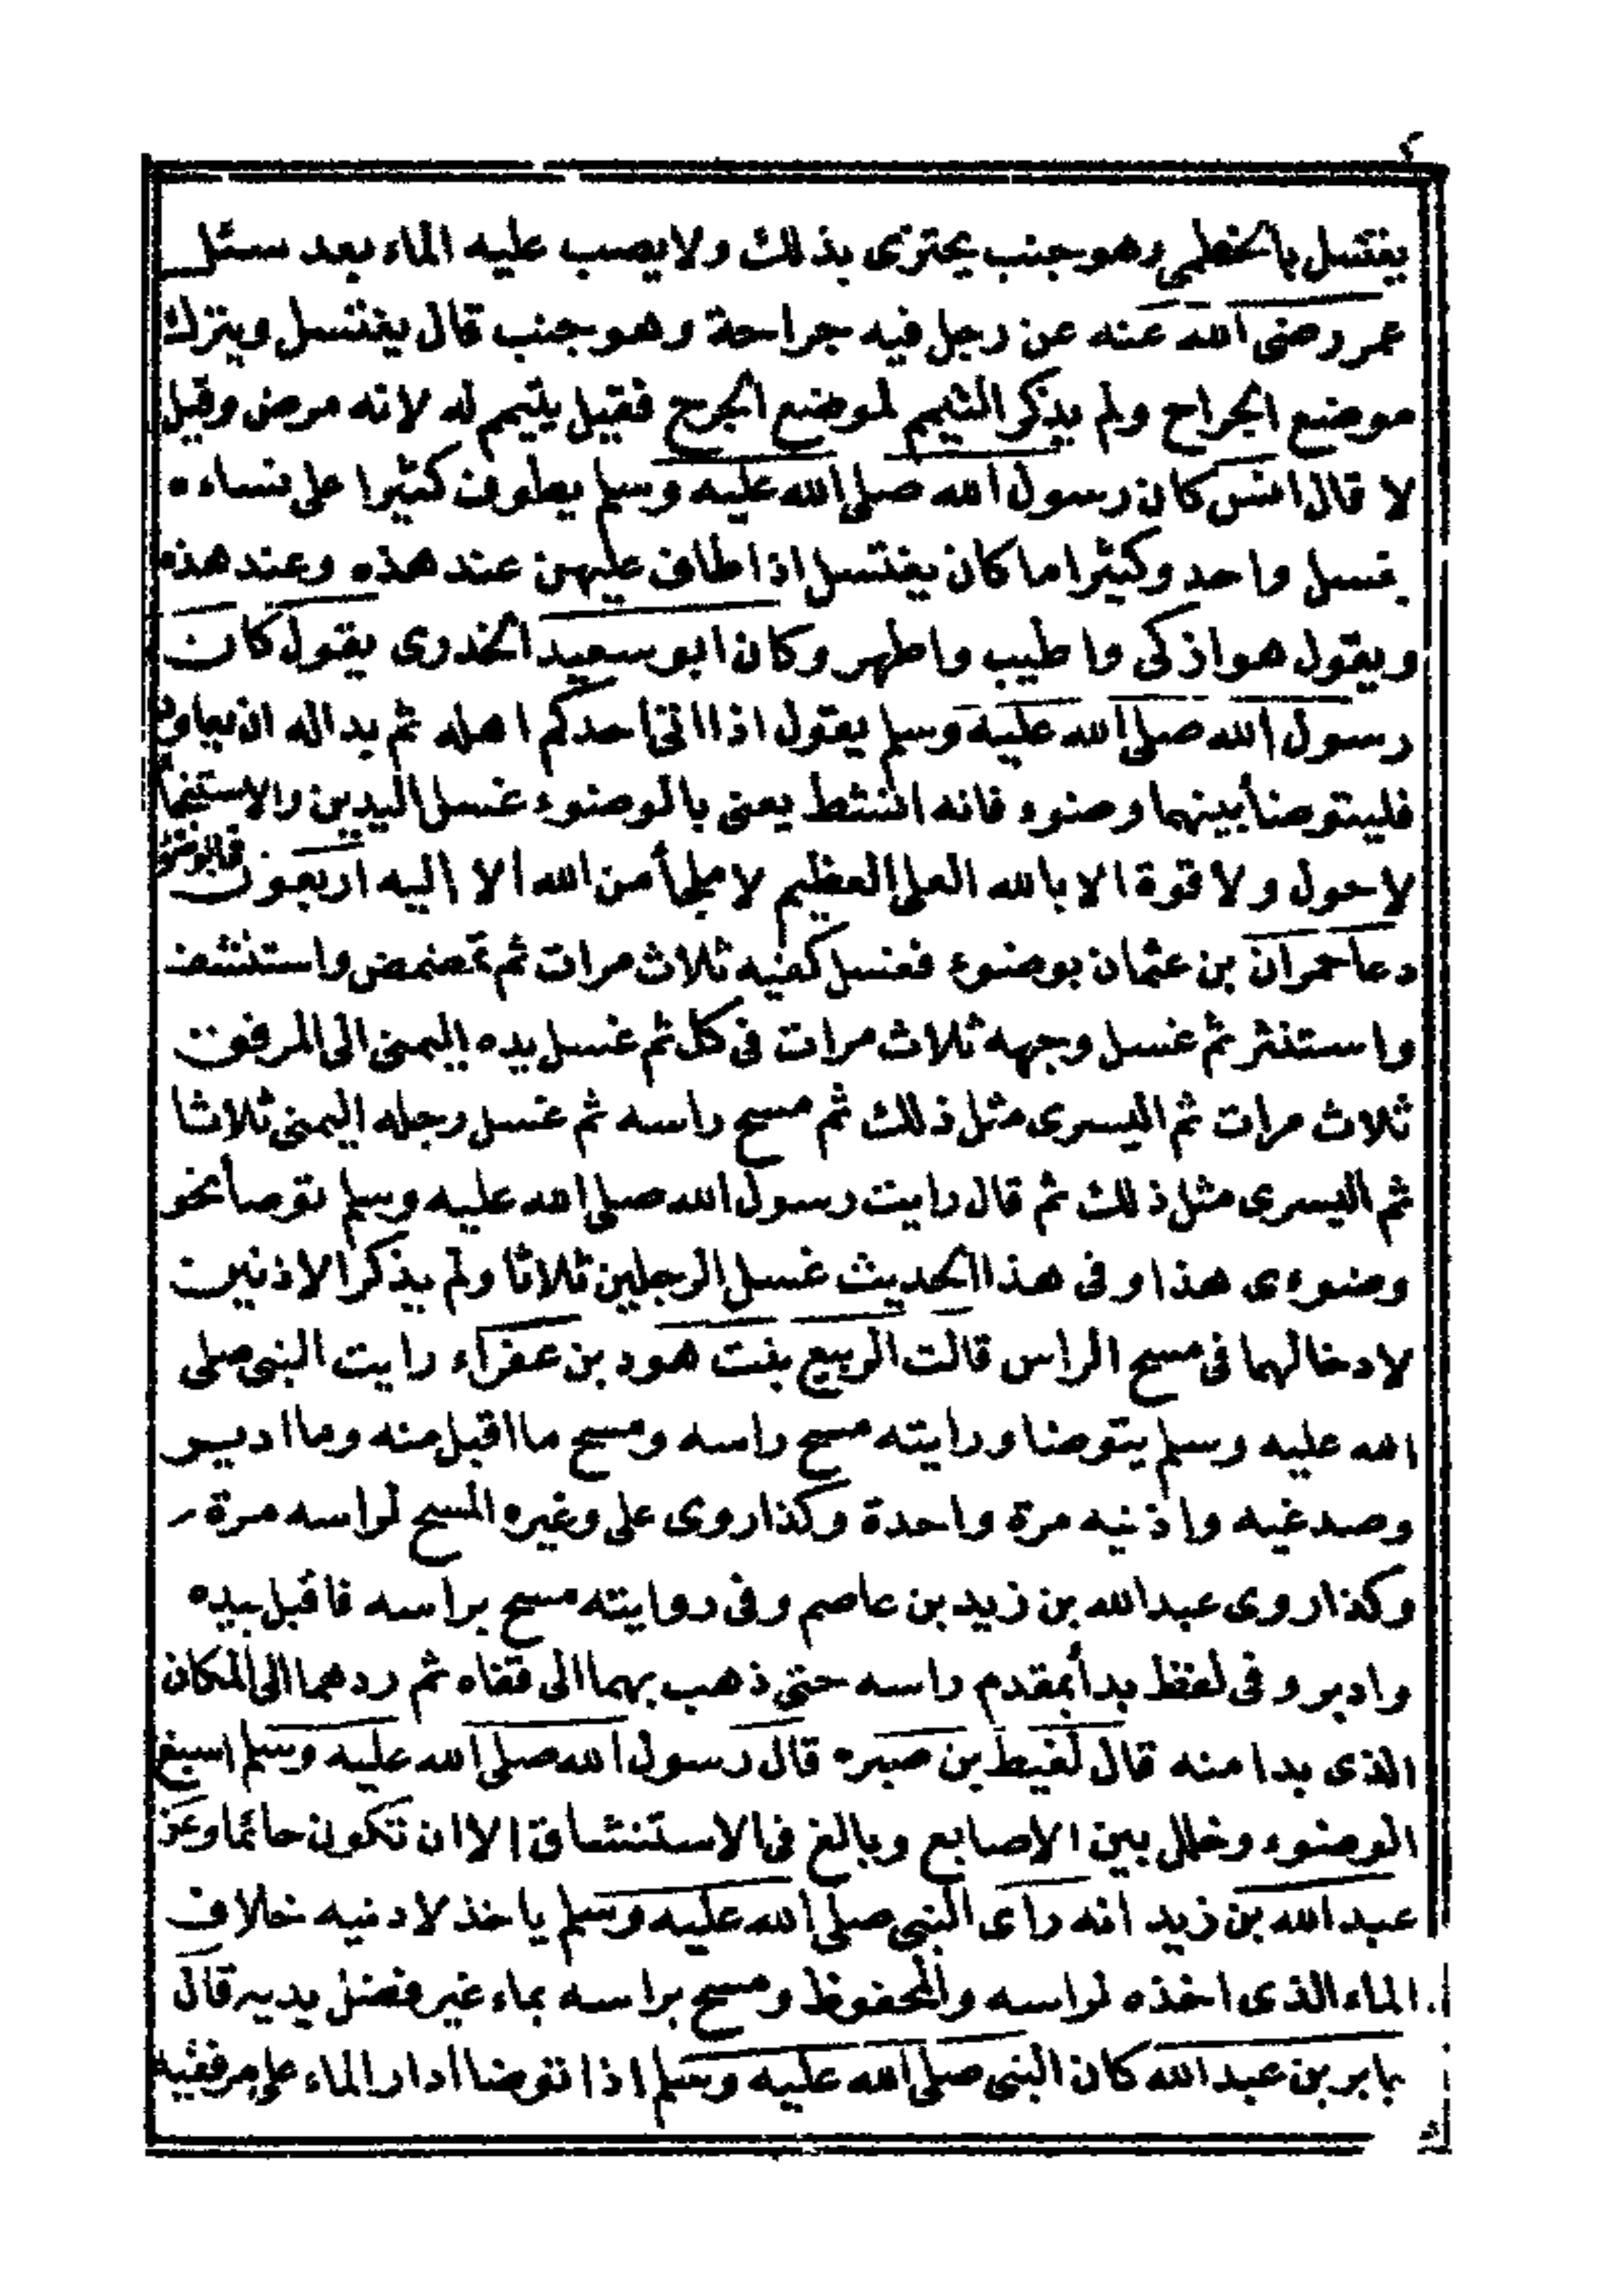 ٤
يغتسل بالخطمى وهو جنب يجتزى بذلك ولا يصب عليه الماء بعد سئل
عمر رضى الله عنه عن رجل فيه جراحة وهو جنب قال يغتسل ويترك
موضع الجراح ولم يذكر التيمم لموضع الجرح فقيل يتيمم له لانه مرض وقيل
لا قال انس كان رسول الله صلى الله عليه وسلم يطوف كثيرا على نساءه
بغسل واحد وكثيرا ما كان يغتسل اذا طاف عليهن عند هذه وعند هذه
ويقول هو ازكى واطيب واطهر وكان ابو سعيد الخدرى يقول كان
رسول الله صلى الله عليه وسلم يقول اذا اتى احدكم اهله ثم بدا له ان يعاود
فليتوضأ بينهما وضوء فانه انشط يعنى بالوضوء غسل اليدين والاستنجا
لا حول ولا قوة الا بالله العلى العظيم لا ملجأ من الله الا اليه اربعون
دعا حمران بن عثمان بوضوء فغسل كفيه ثلاث مرات ثم تمضمض واستنشق
واستنثر ثم غسل وجهه ثلاث مرات فى كل ثم غسل يده اليمنى الى المرفق
ثلاث مرات ثم اليسرى مثل ذلك ثم مسح راسه ثم غسل رجله اليمنى ثلاثا
ثم اليسرى مثل ذلك ثم قال رايت رسول الله صلى الله عليه وسلم توضأ نحو
وضوءى هذا وفى هذا الحديث غسل الرجلين ثلاثا ولم يذكر الاذنين
لادخالهما فى مسح الراس قالت الربيع بنت هود بن عفراء رايت النبى صلى
الله عليه وسلم يتوضا ورايته مسح راسه ومسح ما اقبل منه وما ادبر
وصدغيه واذنيه مرة واحدة وكذا روى على وغيره المسح لراسه مرة
وكذا روى عبد الله بن زيد بن عاصم وفى روايته مسح براسه فاقبل بيده
وادبر وفى لفظ بدأ بمقدم راسه حتى ذهب بهما الى قفاه ثم ردهما الى المكان
الذى بدا منه قال لغيط بن صبره قال رسول الله صلى الله عليه وسلم اسبغ
الوضوء وخلل بين الاصابع وبالغ فى الاستنشاق الا ان تكون صائما وعن
عبد الله بن زيد انه راى النبى صلى الله عليه وسلم ياخذ لاذنيه خلاف
الماء الذى اخذه لراسه والمحفوظ ومسح براسه بماء غير فضل يديه قال
جابر بن عبد الله كان النبى صلى الله عليه وسلم اذا توضا ادار الماء على مرفقيه